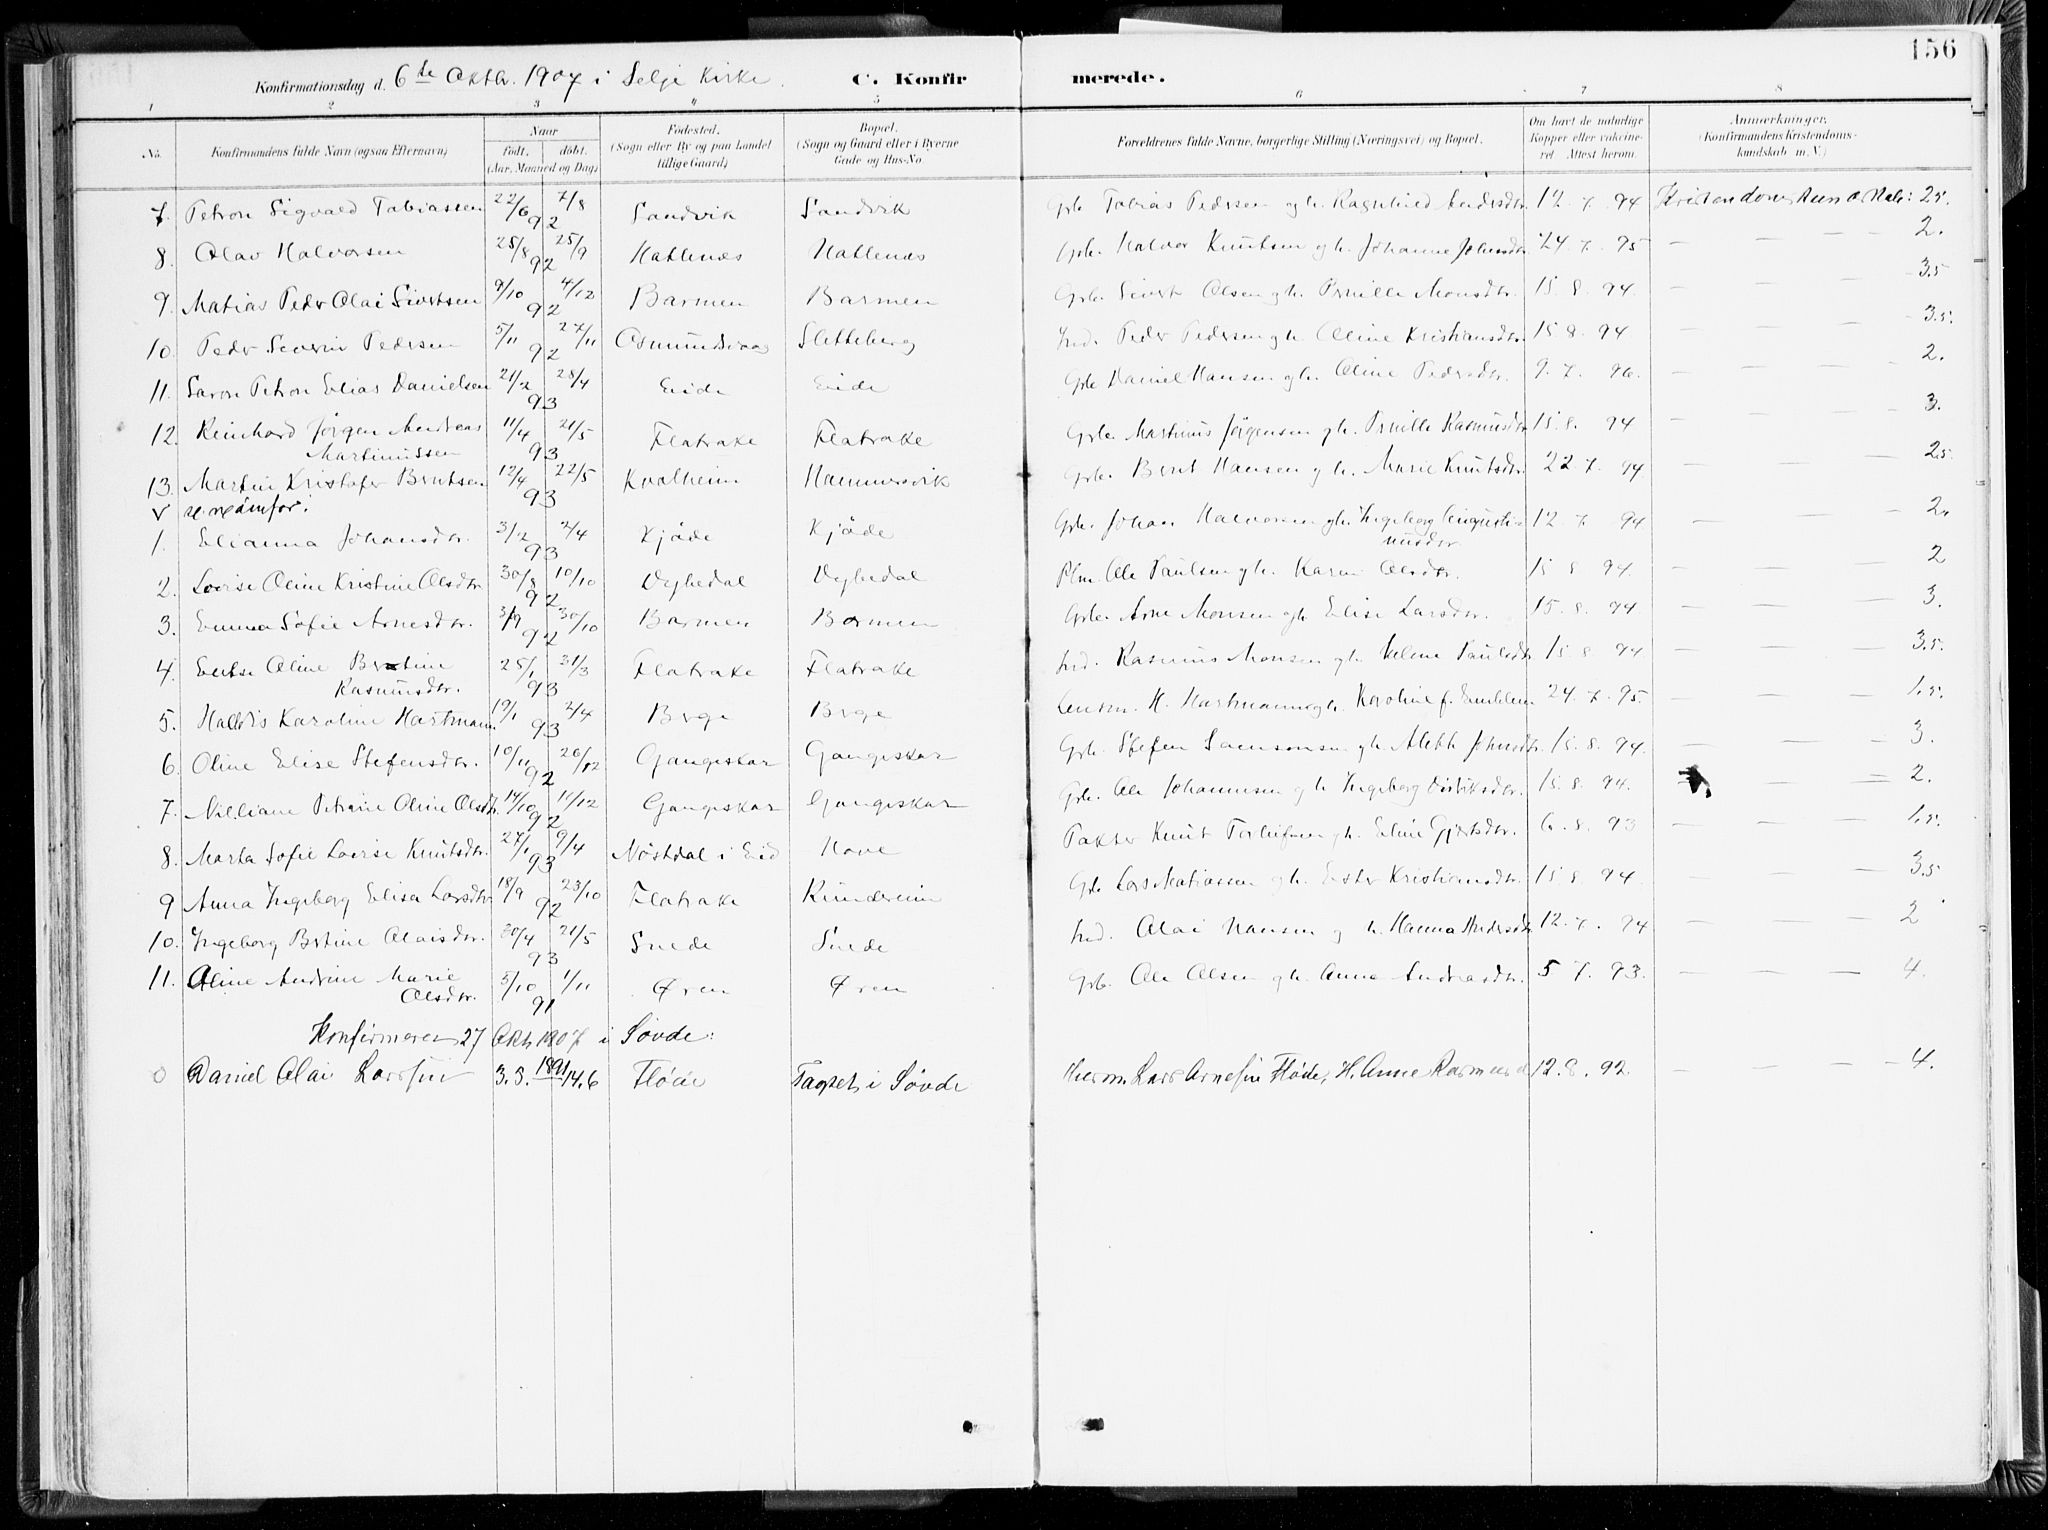 156
Konfirmationsdag d. 6te Oktbr. 1907 i Selje Kirke. C. Konfirmerede.
1 2 3 4 5 6 7 8
No. Konfirmandens fulde Navn (ogsaa Efternavn) Naar født, døbt. (Aar, Maaned og Dag) Fødested. (Sogn eller By og paa Landet tillige Gaard) Bopæl. (Sogn og Gaard eller i Byerne Gade og Hus-No. Forældrenes fulde Navne, borgerlige Stilling (Næringsvei) og Bopæl. Om havt de naturlige Kopper eller vakcineret. Attest herom. Anmærkninger. (Konfirmandens Kristendomskundskab m. V.)
7. Petron Sigvald Tobiassen 22/6 7/8 92 Sandvik Sandvik Grb. Tobias Pedersen og h. Ragnhild Andersdtr. 12. 7. 94 Kristendoms 2.5.
8. Olav Halvorsen 25/8 25/9 92 Hatlenæs Hatlenæs Grb. Halvor Knutsen og h. Johanne Johnsdtr. 24. 7. 95 — — — 2.
9. Matias Peder Olai Sivertsen 9/10 4/12 92 Barmen Barmen Grb. Sivert Olsen og h. Pernille Monsdtr. 15. 8. 94. — — — 3.5
10. Peder Severin Pedersen 5/11 27/11 92 Osmundsvaag Sletteberg Ind. Peder Pedersen og h. Oline Kristiansdtr. 15 8. 94 — — — 3.5.
11. Saron Petron Elias Danielsen 21/2 28/4 93 Eide Eide Grb. Daniel Hansen og h. Oline Pedersdtr. 9. 7. 96. — — — 2.
12. Reinhard Jørgen Andreas Martinussen 11/4 21/5 93 Flatrake Flatrake Grb. Martinus Jørgensen og h. Pernille Rasmusdtr. 15. 8. 94 — — — 3.
13. Martin Kristofer Berntsen 12/4 22/5 93 Kvalheim Hammersvik Grb. Bernt Hansen og h. Marie Knutsdtr. 22. 7. 94 — — — 2.5.
v se nedenfor!
1. Elianna Johansdtr. 3/2 2/4 93 Kjøde Kjøde Grb. Johan Halvorsen og h. Ingeborg Augustinusdtr. 12. 7. 94 — — — 2.
2. Lovise Oline Kristine Olsdtr. 30/8 10/10 92 Dyhedal Dyhedal Plm. Ole Paulsen og h. Karen Olsdtr. 15 8 94. — — — 2
3. Emma Sofie Arnesdtr. 3/9 30/10 92 Barmen Barmen Grb. Arne Monsen og h. Elise Larsdtr. 15. 8. 94 — — — 3.
4. Eertse Oline Bertine Rasmusdtr. 25/1 31/3 93 Flatrake Flatrake Ind. Rasmus Monsen og h. Helene Paulsdtr. 15. 8 94 — — — 3.5.
5. Halldis Karoline Hartmann 19/1 2/4 93 Berge Berge Lensm. H. Hartmann og h. Karoline f. Emblem 24. 7. 95. — — — 1.5.
6. Oline Elise Stefensdtr. 10/11 26/12 92 Gangeskar Gangeskar Grb. Stefen Samsonsen og h. Aleth Johnsdtr. 15. 8. 94. — — — 3.
7. Nilliane Petrine Oline Olsdtr. 14/10 11/12 92 Gangeskar Gangeskar Grb. Ole Johannesen og h. Ingeborg Didriksdtr. 15. 8. 94. — — 2.
8. Marta Sofie Lovise Knutsdtr. 27/1 9/4 93 Nøstdal i Eid Hove Pakter Knut Torleifsen og h. Eline Gjertsdtr. 6. 8. 93 — — — 1.5.
9 Anna Ingeborg Elisa Larsdtr. 18/9 23/10 92 Flatrake Rundereim Grb. Lars Matiassen og h. Ester Kristiansdtr. 15. 8. 94. — — — 3.5
10. Ingeborg Bertine Olaisdtr. 20/4 21/5 93 Snede Snede Ind. Olai Hansen og h. Hanna Andersdtr. 12. 7. 94 — — — 2
11. Oline Andrine Marie Olsdtr. 5/10 1/11 91 Øren Øren Grb. Ole Olsen og h. Anna Andreasdtr. 5 7. 93. — — — 4.
Konfirmeret 27 Okt. 1907 i Søvde:
0 Daniel Olai Larssen 3.3. 1891 14.6 Fløde i Søvde Lars Arnesen Fløde, H. Anne Rasmusd. 12. 8. 92. — — — 4.